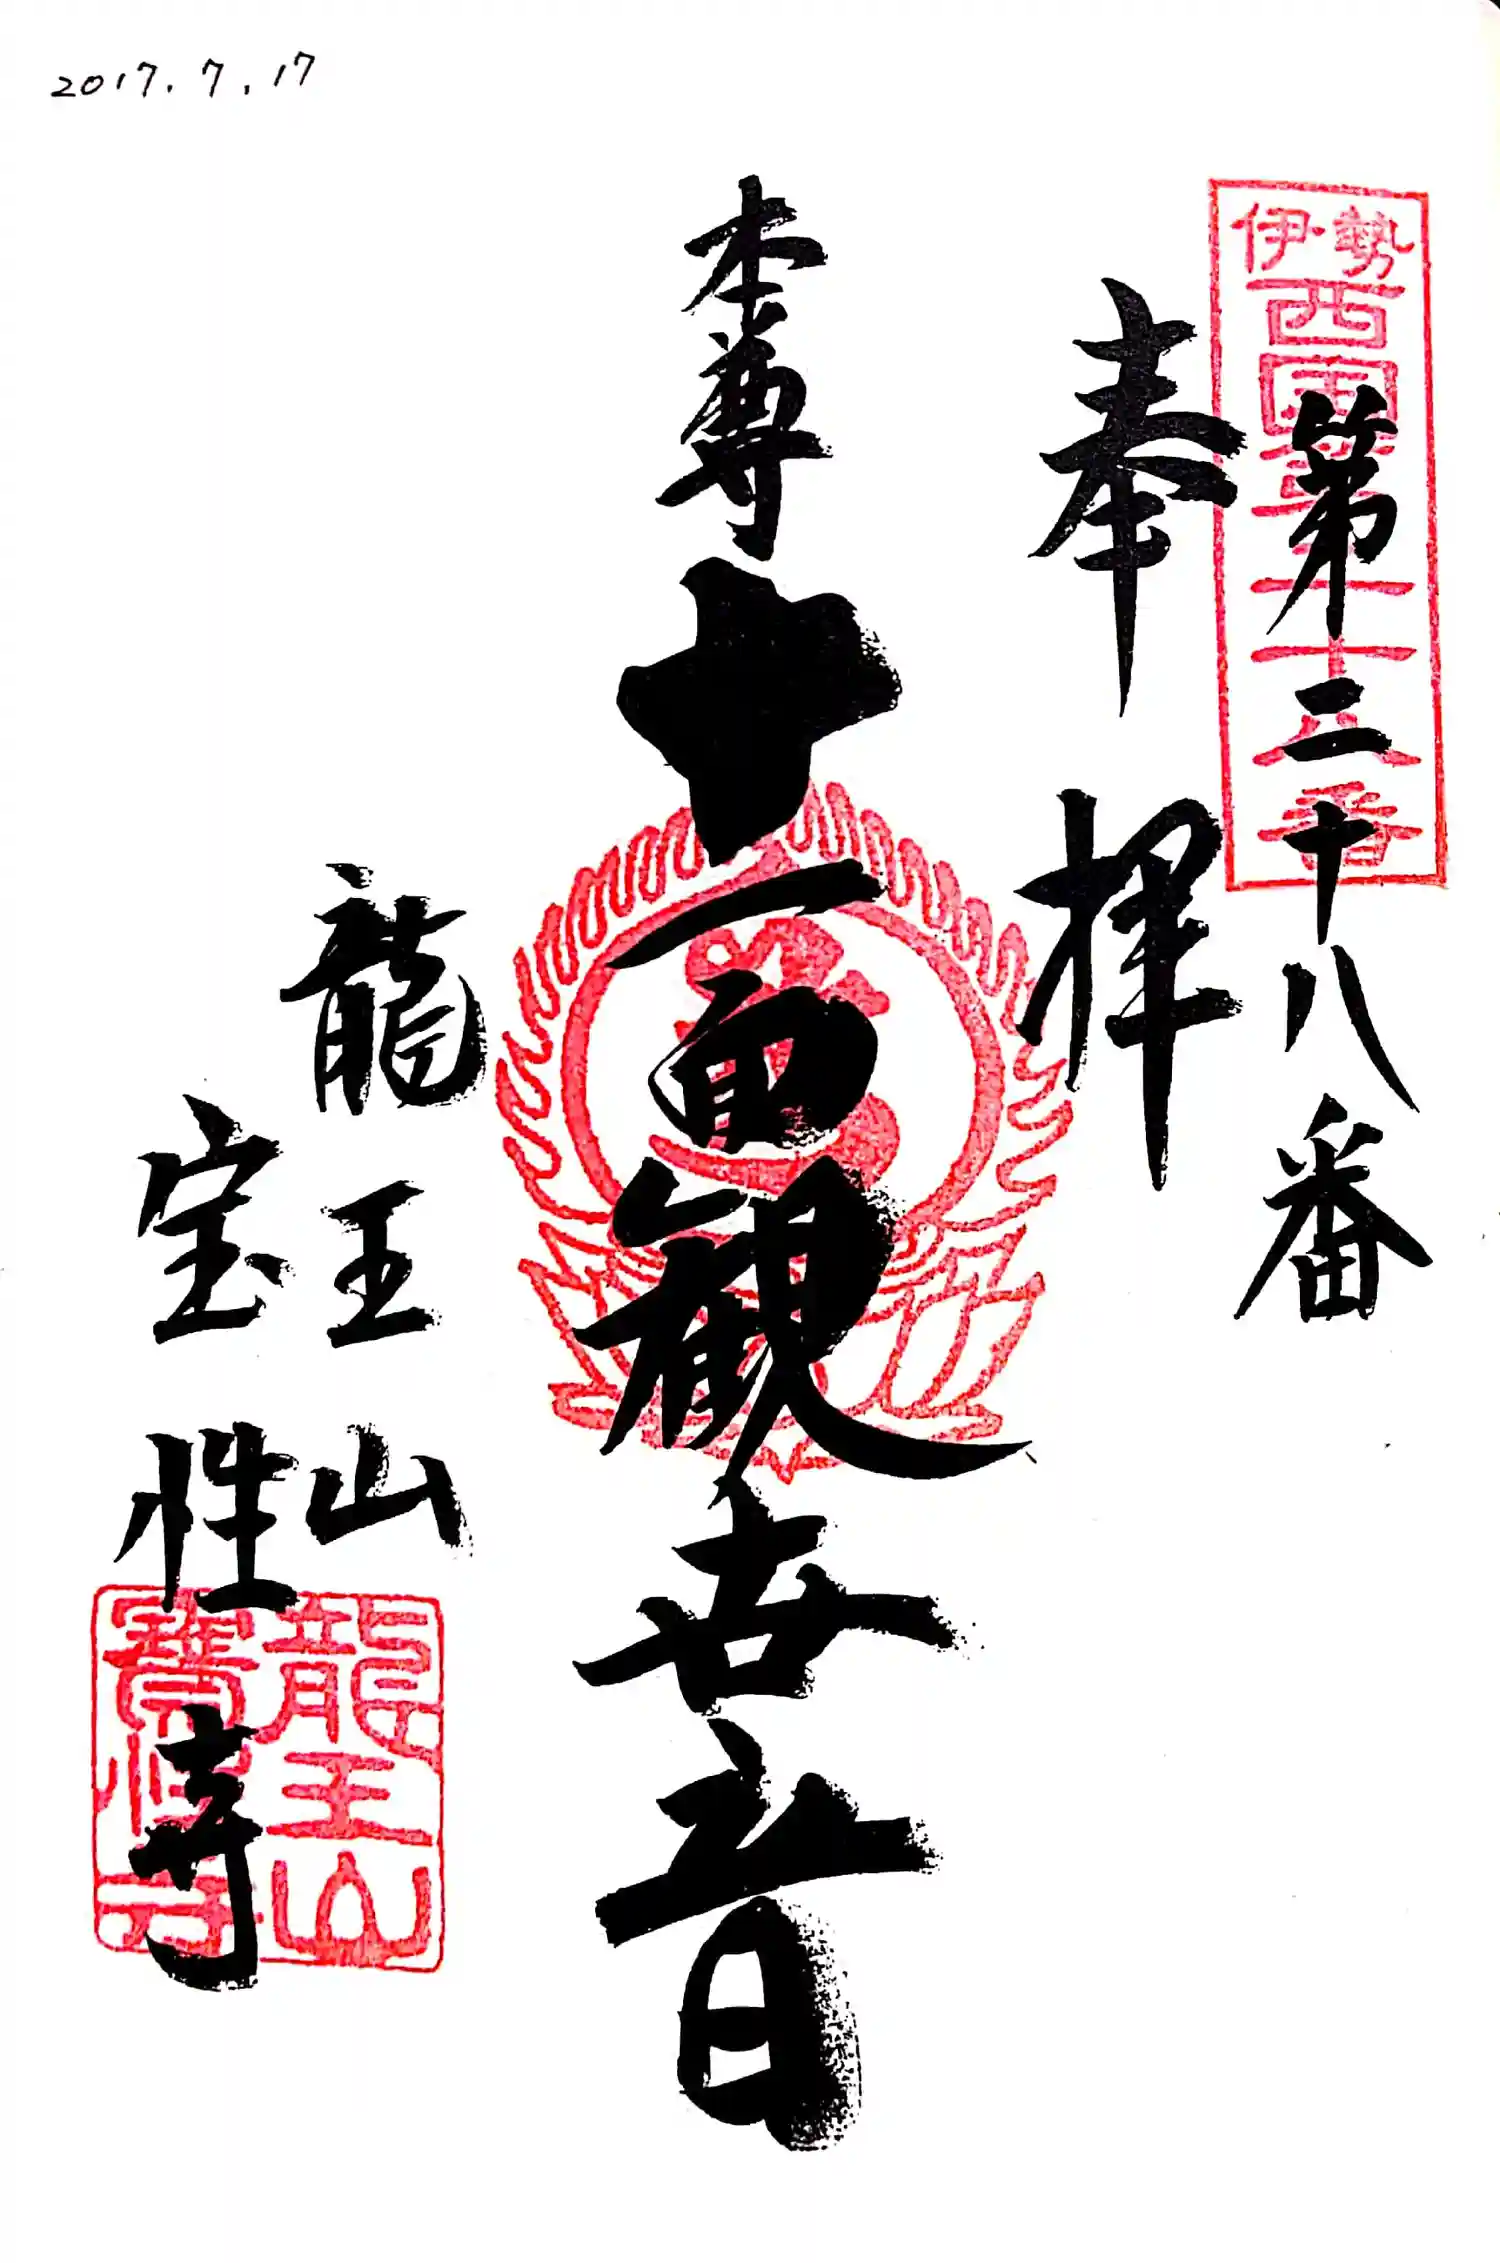 2017.7.17
伊勢
西国第二十八番
第二十八番
奉拝
本尊 十一面観世音
龍王山
宝性寺
龍王山
寶性寺